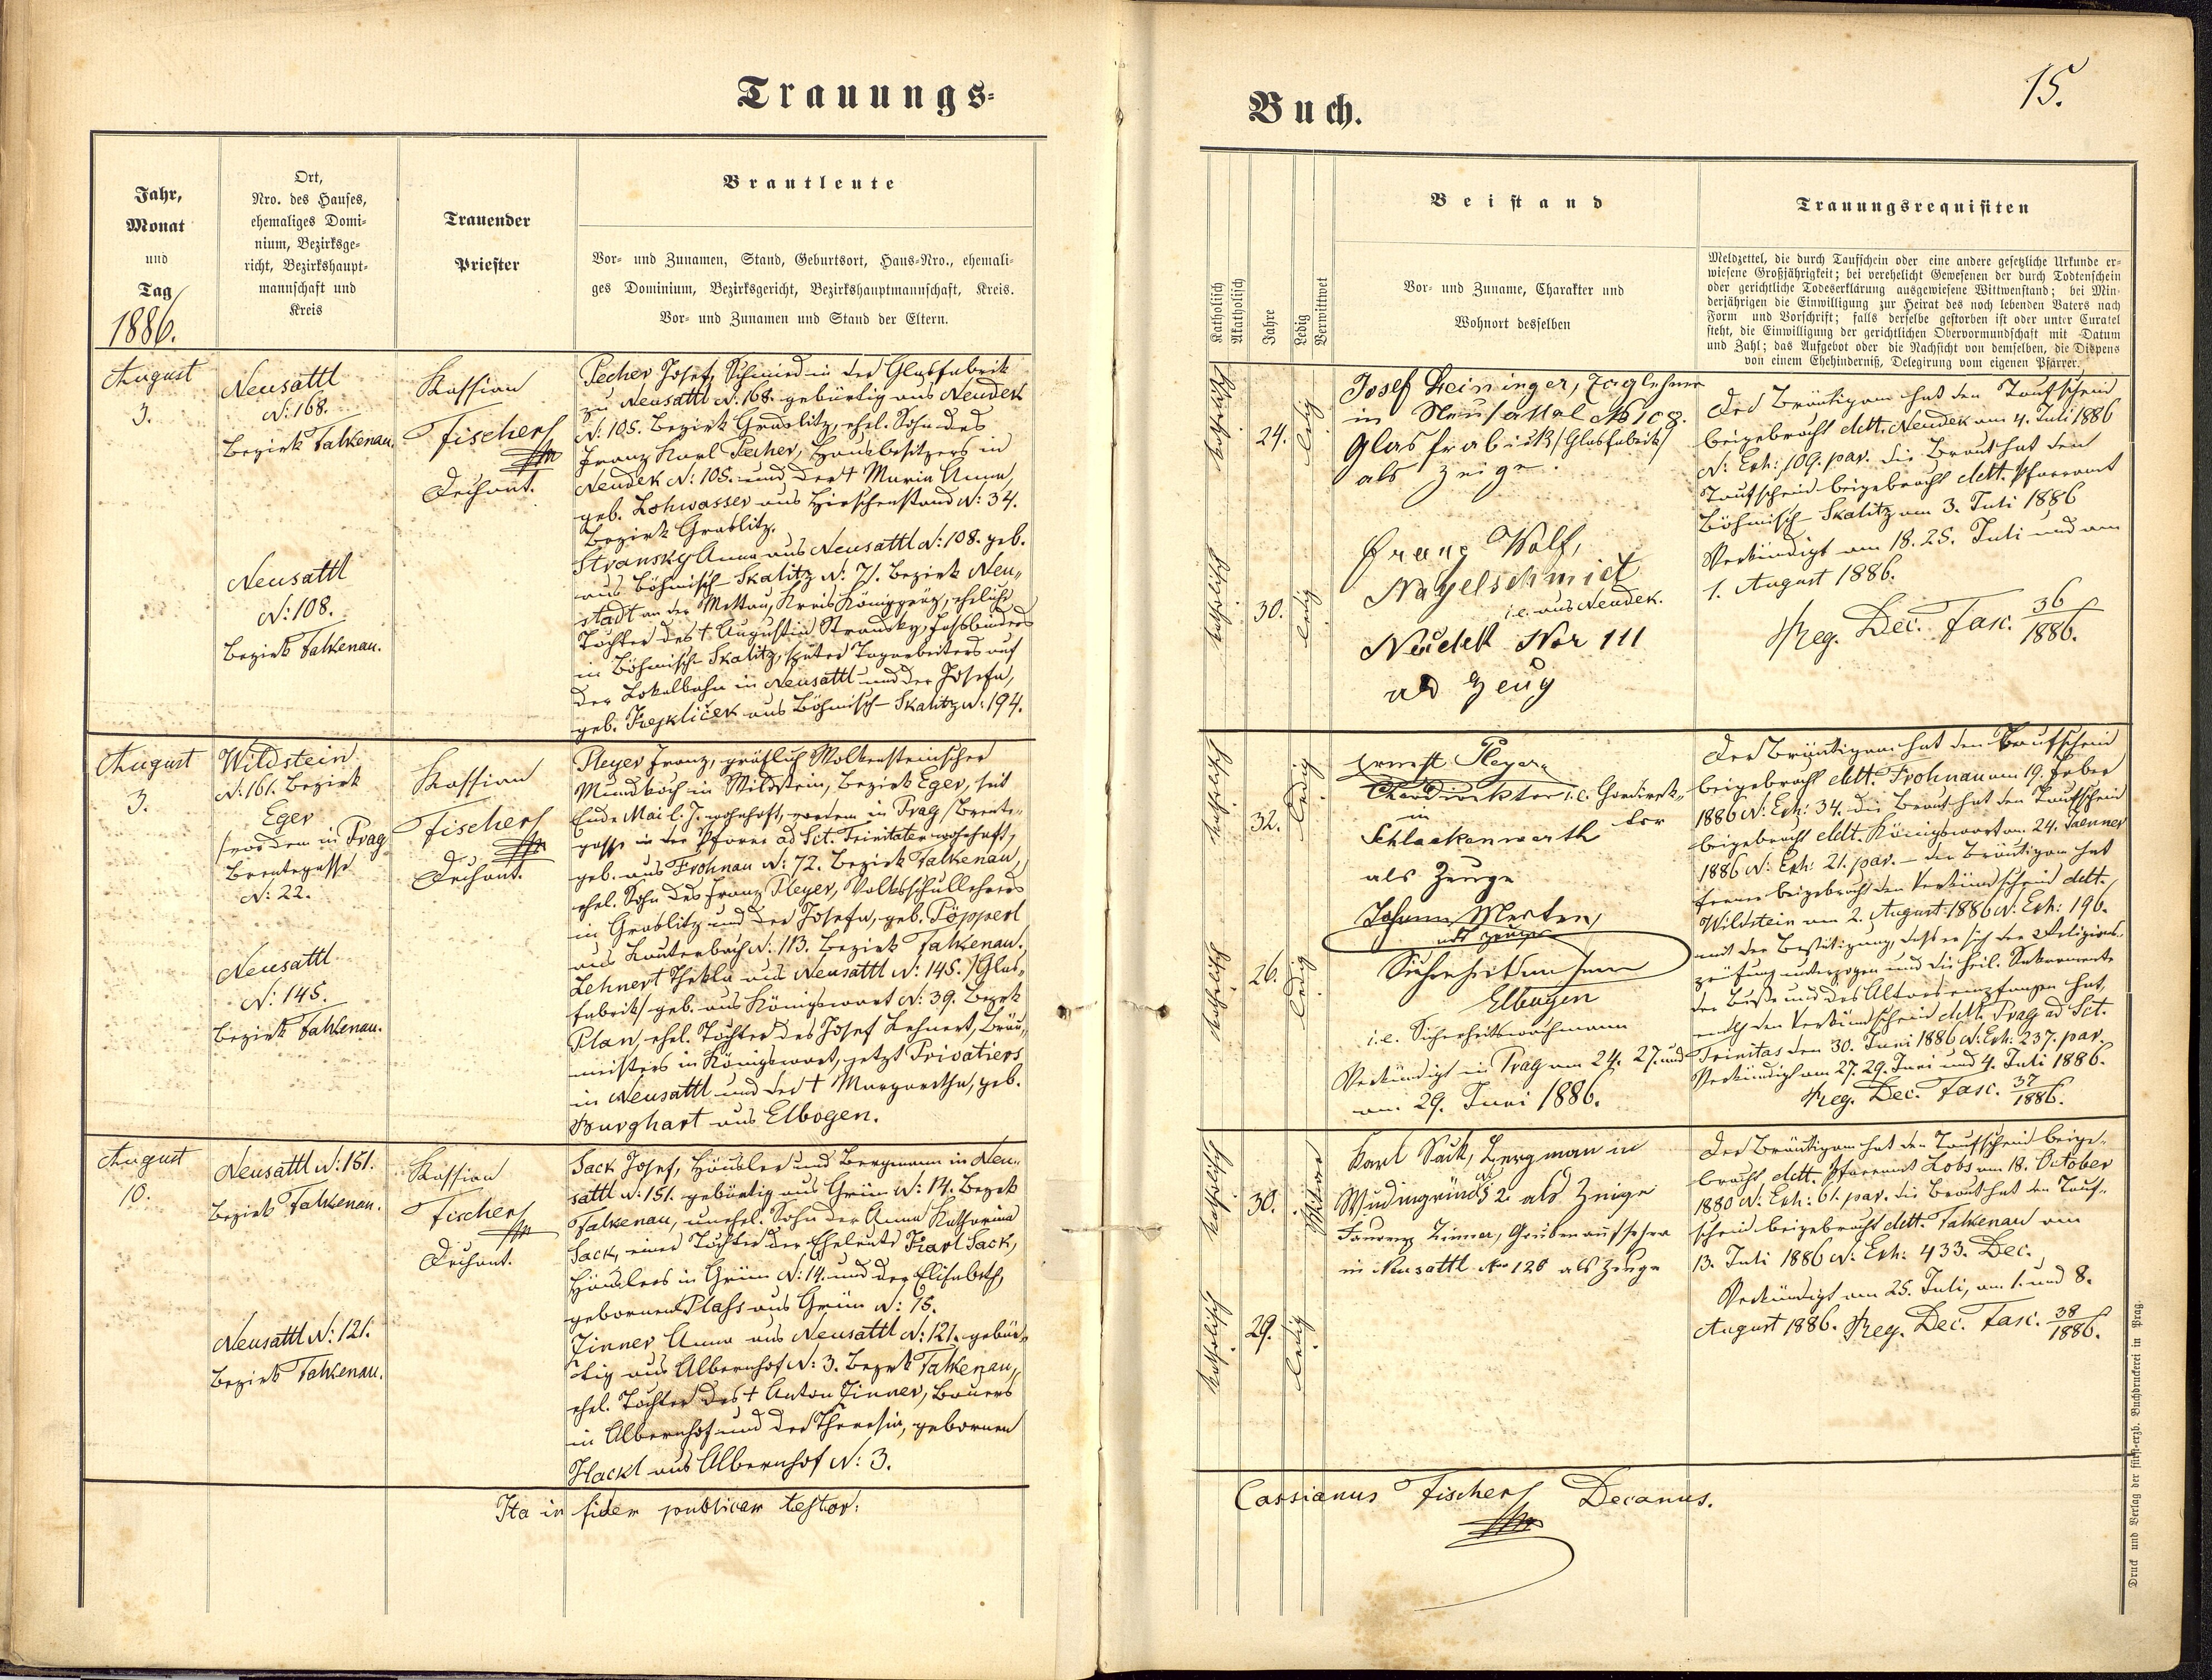 Trauungs-
Jahr,
Monat
und
Tag
1886.
Ort,
Nro. des Hauses,
ehemaliges Domi-
nium, Bezirksge-
richt, Bezirkshaupt-
mannschaft und
Kreis
Trauender
Priester
Brautleute
Vor- und Zunamen, Stand, Geburtsort, Haus-Nro., ehemali-
ges Dominium, Bezirksgericht, Bezirkshauptmannschaft, Kreis.
Vor- und Zunamen und Stand der Eltern.
August
3.
Neusattl
N: 168.
Bezirk Falkenau.
Neusattl
N: 108.
Bezirk Falkenau.
Kassian
Fischer
Dechant.
Pecher Josef, Schmied in der Glasfabrik
zu Neusattl N: 168. gebürtig aus Neudek
N: 105. Bezirk Graslitz, ehel. Sohn des
Franz Karl Pecher, Hausbesitzers in
Neudek N: 105. und der † Maria Anna,
geb. Lohwasser aus Hirschenstand N: 34.
Bezirk Graslitz.
Stransky Anna aus Neusattl N: 108. geb.
aus Böhmisch Skalitz N: 71. Bezirk Neu-
stadt an der Mettau, Kreis Königgrätz, eheliche
Tochter des † Augustin Stransky, Fassbinders
in Böhmisch-Skalitz, später Tagarbeiters auf
der Lokalbahn in Neusattl und der Josefa,
geb. Frejkliček aus Böhmisch-Skalitz N: 194.
August
3.
Wildstein
N: 161. Bezirk
Eger
(vordem in Prag
Brentegasse
N: 22.
Neusattl
N: 145.
Bezirk Falkenau.
Kassian
Fischer
Dechant.
Pleyer Franz, gräflich Wolkensteinscher
Mundkoch in Wildstein, Bezirk Eger, seit
Ende Mai l. J. wohnhaft, vordem in Prag (Brente-
gasse in der Pfarre ad Sct. Trinitatem wohnhaft,
geb. aus Frohnau N: 72. Bezirk Falkenau,
ehel. Sohn des Franz Pleyer, Volksschullehrers
in Graslitz und der Josefa, geb. Pöpperl
aus Lauterbach N: 113. Bezirk Falkenau.
Lehnert Thekla aus Neusattl N: 145. (Glas-
fabrik) geb. aus Königswart N: 39. Bezirk
Plan, ehel. Tochter des Josef Lehnert, Bräu-
meisters in Königswart, jetzt Privatiers
in Neusattl und der † Margaretha, geb.
Burghart aus Elbogen.
August
10.
Neusattl N: 151.
Bezirk Falkenau.
Neusattl N: 121.
Bezirk Falkenau.
Kassian
Fischer
Dechant.
Sack Josef, Häusler und Bergmann in Neu-
sattl N: 151. gebürtig aus Grün N: 14. Bezirk
Falkenau, unehel. Sohn der Anna Katharina
Sack, einer Tochter der Eheleute Karl Sack,
Häuslers in Grün N: 14. und der Elisabeth,
gebornen Plass aus Grün N: 15.
Zinner Anna aus Neusattl N: 121. gebür-
tig aus Albernhof N: 3. Bezirk Falkenau,
ehel. Tochter des † Anton Zinner, Bauers
in Albernhof und der Theresia, gebornen
Hackl aus Albernhof N: 3.
Ita in fidem publicam testor:
Buch.
15.
Katholisch
Akatholisch
Jahre
Ledig
Verwittwet
Beistand
Vor- und Zuname, Charakter und
Wohnort desselben
Trauungsrequisiten
Meldzettel, die durch Taufschein oder eine andere gesetzliche Urkunde er-
wiesene Großjährigkeit; bei verehelicht Gewesenen der durch Todtenschein
oder gerichtliche Todeserklärung ausgewiesene Wittwenstand; bei Min-
derjährigen die Einwilligung zur Heirat des noch lebenden Vaters nach
Form und Vorschrift; falls derselbe gestorben ist oder unter Curatel
steht, die Einwilligung der gerichtlichen Obervormundschaft mit Datum
und Zahl; das Aufgebot oder die Nachsicht von demselben, die Dispens
von einem Ehehinderniß, Delegirung vom eigenen Pfarrer.
katholisch
24.
ledig
katholisch
30.
ledig
Josef Heininger, Taglehner
in Neusattal No 108.
Glasfrabick (Glasfabrik)
als Zeige.
Franz Wolf,
Nagelschmidt
i.e. aus Neudek.
Neudek Nor 111
als Zeug
Der Bräutigam hat den Taufschein
beigebracht ddt. Neudek am 4. Juli 1886
N: Exh: 109. par. Die Braut hat den
Taufschein beigebracht ddt. Pfarramt
Böhmisch-Skalitz am 3. Juli 1886
Verkündigt am 18. 25. Juli und am
1. August 1886.
Reg. Dec. Fasc. 36/1886.
katholisch
32.
ledig
katholisch
26.
ledig
Ernest Pleyer
Chordirektor i.e. Chordirek-
in tor
Schlackenwerth
als Zeuge
Johann Merten,
als Zeuge
Elbogen
i.e. Sicherheitswachmann
Verkündigt in Prag am 24. 27. und
am 29. Juni 1886.
Der Bräutigam hat den Taufschein
beigebracht ddt. Frohnau am 19. Feber
1886 N: Exh: 34. Die Braut hat den Taufschein
beigebracht ddt. Königswart am 24. Jaenner
1886 N: Exh: 21. par. – Der Bräutigam hat
ferner beigebracht den Verkündschein ddt.
Wildstein am 2. August 1886 N: Exh: 196.
mit der Bestätigung, daß er sich der Religions-
prüfung unterzogen und die heil. Sakramente
der Buße und des Altars empfangen hat,
endlich den Verkündschein ddt. Prag ad Sct.
Trinitas den 30. Juni 1886 N: Exh: 237. par.
Verkündigt am 27. 29. Juni und 4. Juli 1886.
Reg. Dec. Fasc. 37/1886.
katholisch
30.
Witwer
katholisch
29.
ledig
Karl Sack, Bergman in
Wudingrün No 52 als Zeige
Laurenz Zinner, Grubenaufseher
in Neusattl Nro 128 als Zeuge
Der Bräutigam hat den Taufschein beige-
bracht ddt. Pfarramt Lobs am 18. October
1880 N: Exh: 61. par. Die Braut hat den Tauf-
schein beigebracht ddt. Falkenau am
13. Juli 1886 N: Exh: 433. Dec.
Verkündigt am 25. Juli, am 1. und 8.
August 1886. Reg. Dec. Fasc. 38/1886.
Cassianus Fischer Decanus.
Druck und Verlag der fürst-erzb. Buchdruckerei in Prag.